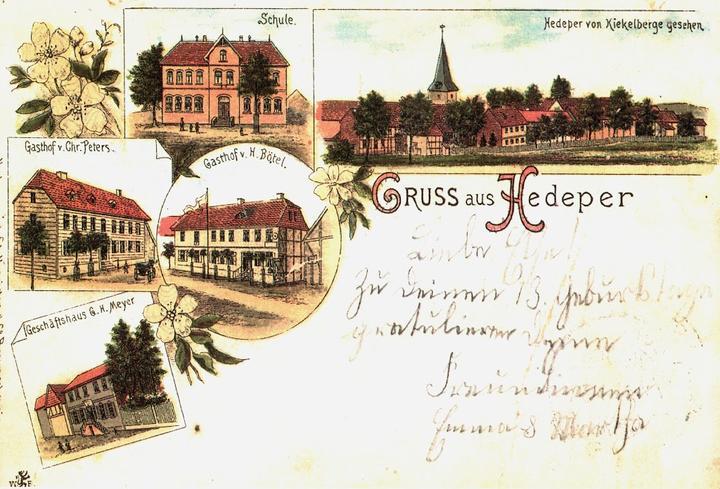 Schule.
Hedeper von Kiekelberge gesehen.
Gasthof v. Chr. Peters.
Gasthof v. H. Bötel.
GRUSS aus Hedeper
Geschäftshaus G. H. Meyer
Liebe
Zu deinem 13. Geburtstage
gratulieren
Freundinnen
Emma & Martha